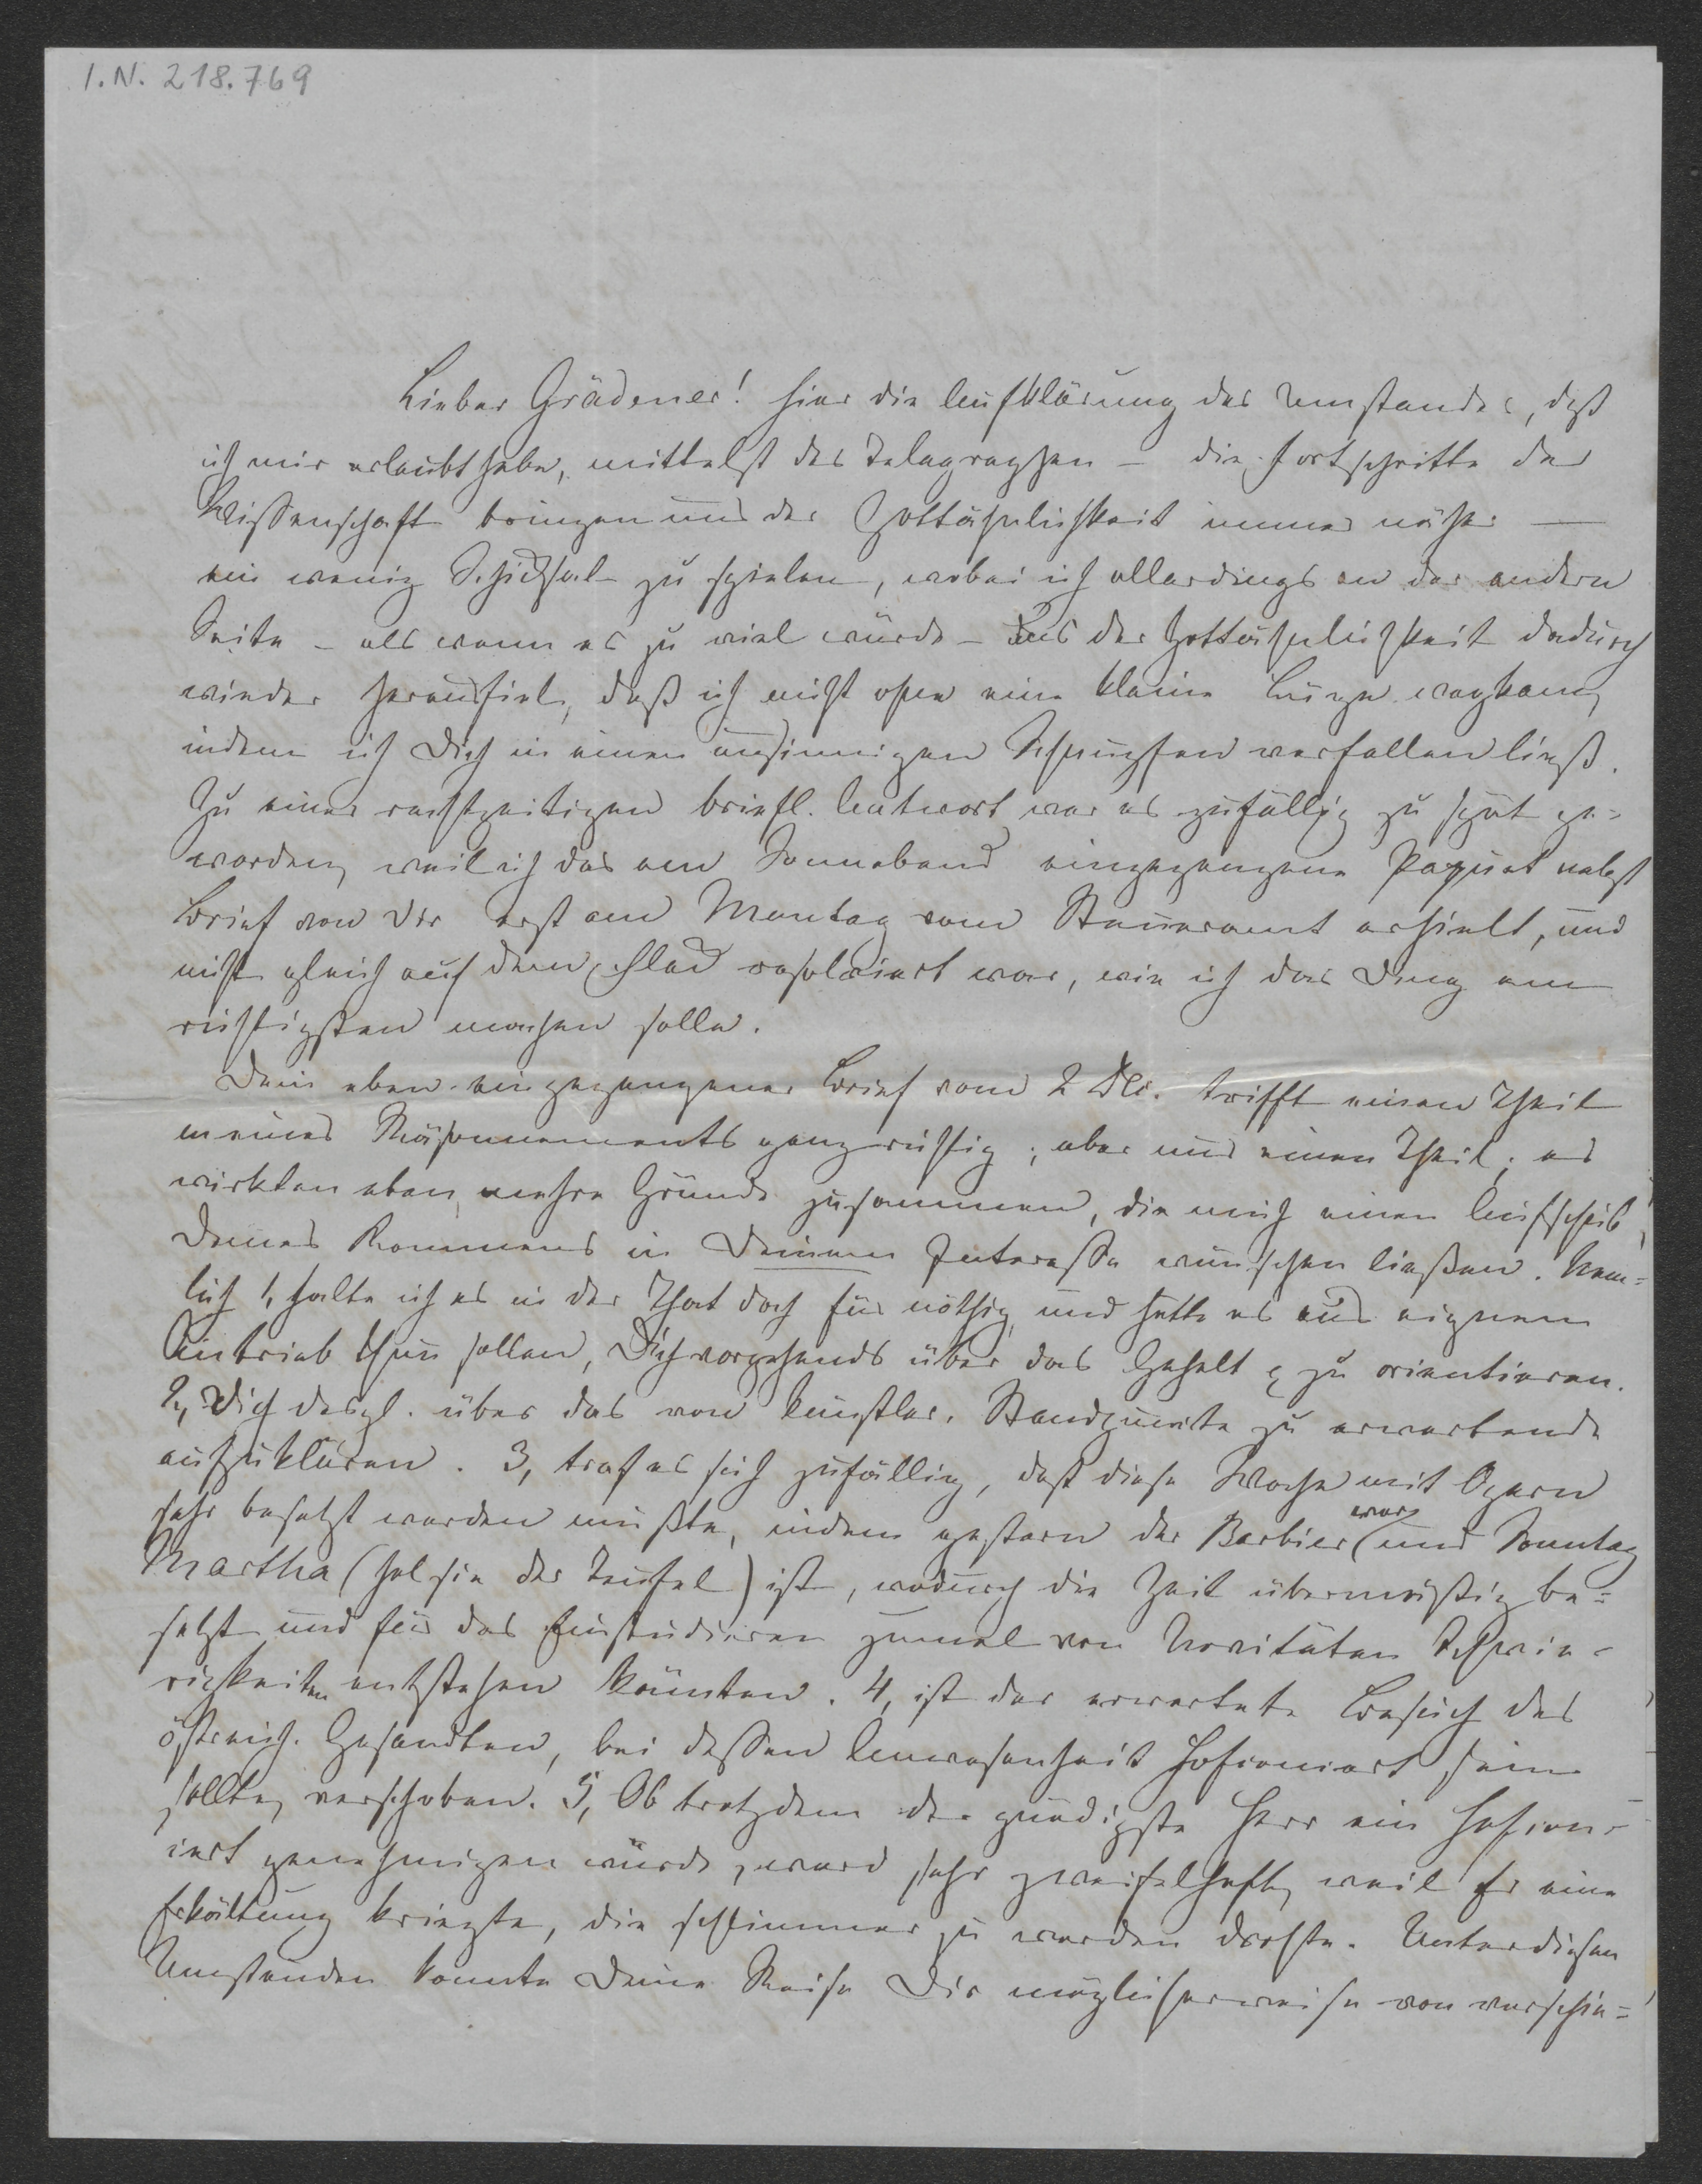 I.N. 218.769
Lieber Grädener! Hier die Aufklärung des Umstandes, daß
ich mir erlaubt habe, mittelst des Telegraphen – die Fortschritte der
Wissenschaft bringen uns der Gottähnlichkeit immer näher –
ein wenig Schicksal zu spielen, wobei ich allerdings an der andern
Seite – als wenn es zu viel würde – aus der Gottähnlichkeit dadurch
wieder herausfiel, daß ich nicht ohne eine kleine Lüge wegkam,
indem ich Dich in einen unsinnigen Schnupfen verfallen ließ.
Zu einer rechtzeitigen briefl. Antwort war es zufällig zu spät ge-
worden, weil ich das am Sonnabend eingegangene Paquet nebst
Brief von Dir erst am Montag vom Steueramt erhielt, und
nicht gleich auf dem Fleck resolviert war, wie ich das Ding am
richtigsten machen solle.
Dein eben eingegangener Brief vom 2 Dec. trifft einen Theil
meines Räsonnements ganz richtig; aber nur einen Theil; es
wirkten eben mehre Gründe zusammen, die mich einen Aufschub
Deines Kommens in Deinem Interesse wünschen ließen. Nem-
lich 1, halte ich es in der That doch für nöthig, und hätte es aus eignem
Antrieb thun sollen, Dich vorgehends über das Gehalt zu orientieren.
2, Dich desgl. über das vom künstler. Standpunkte zu erwartende
aufzuklären. 3, traf es sich zufällig, daß diese Woche mit Opern
sehr besetzt werden mußte, indem gestern der Barbier war und Sonntag
Martha (hol sie der Teufel) ist, wodurch die Zeit übermäßig be-
setzt und für das Einstudieren zumal von Novitäten Schwie-
rigkeiten entstehen könnten. 4, ist der erwartete Besuch des
östreich. Gesandten, bei dessen Anwesenheit Hofconcert sein
sollte, verschoben. 5, Ob trotzdem der gnädigste Herr ein Hofcon-
cert genehmigen würde, ward sehr zweifelhaft, weil Er eine
Erkältung kriegte, die schlimmer zu werden drohte. Unter diesen
Umständen konnte Deine Reise Dir möglicherweise von verschie-